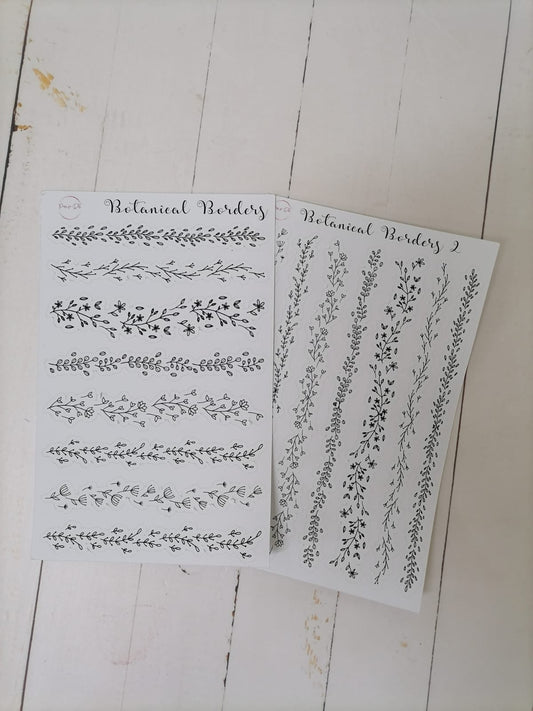 Botanical Borders
Botanical Borders 2